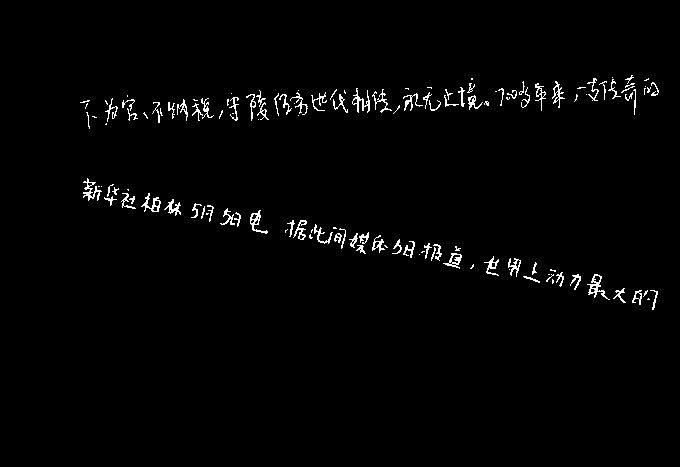 不为官、不纳税，守陵任务世代相传，永无止境。700多年来，一支传奇的
新华社柏林5月5日电 据此间媒体5日报道，世界上动力最大的